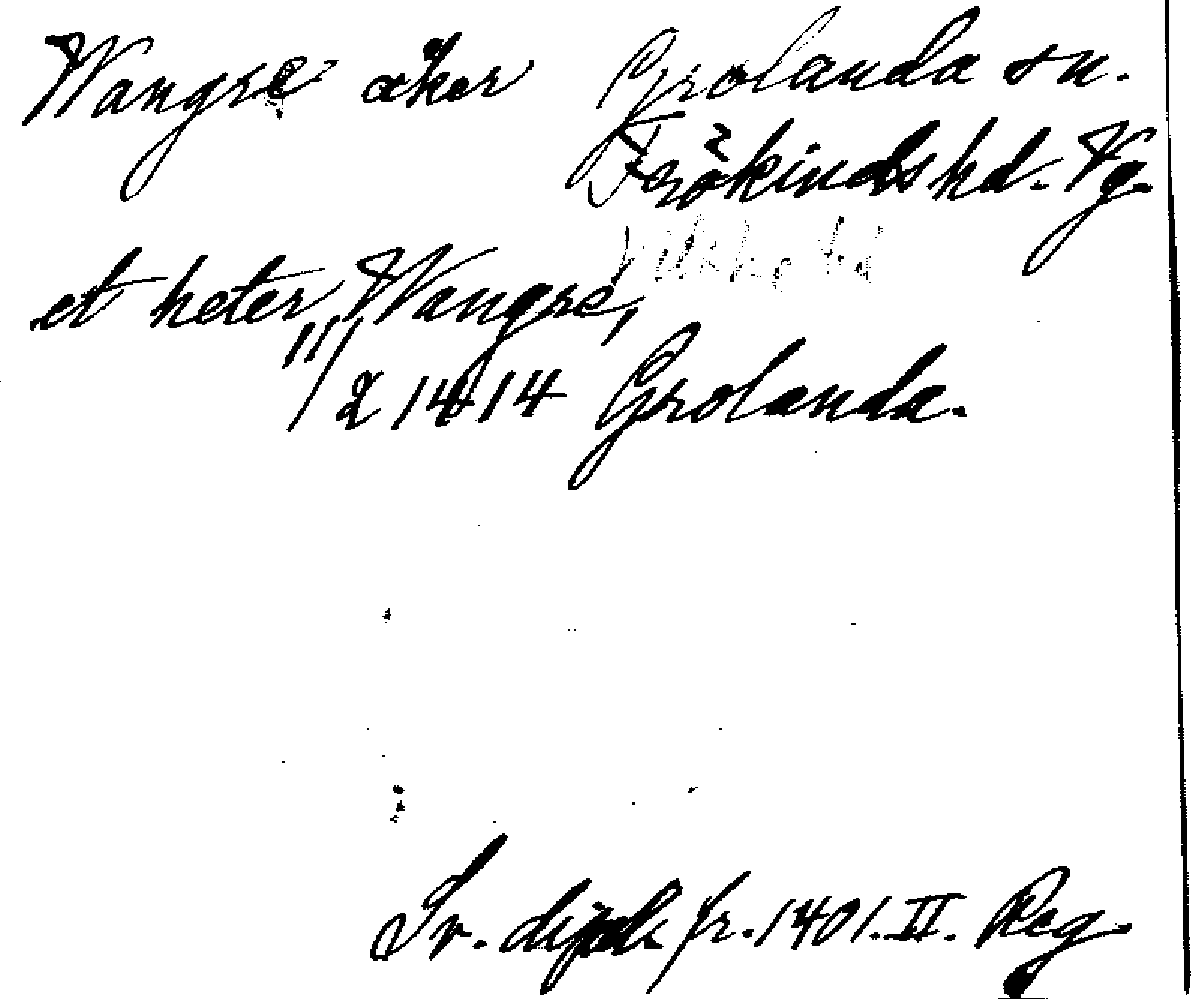 Wangre åker Grolanda sn.
Frökinds hd. Vg.
et heter Wangre,
11/2 1414 Grolanda.
Sv. dipl. fr. 1401. II. Reg.